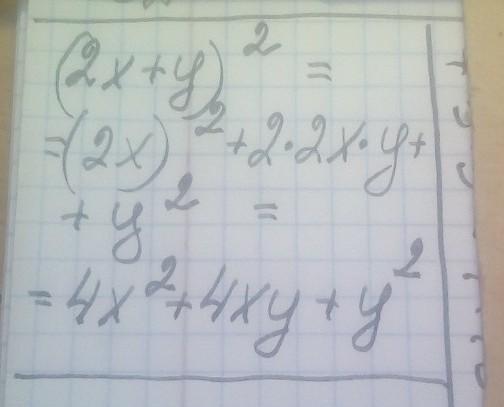 (2x+y)² =
=(2x)²+2·2x·y+
+y² =
=4x²+4xy+y²